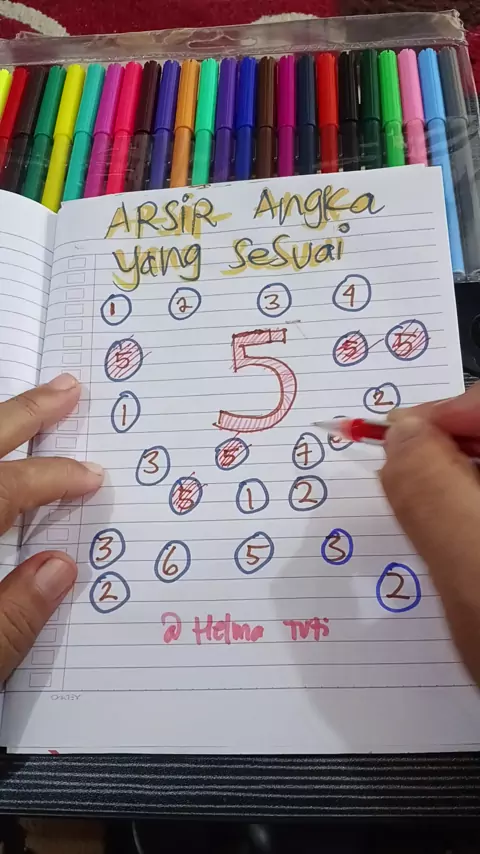 ARSIR Angka
yang Sesuai
1 2 3 4
5 5 5 5
1 2
3 5 7
5 1 2
3 6 5 3
2 2
@ Helma Tuti